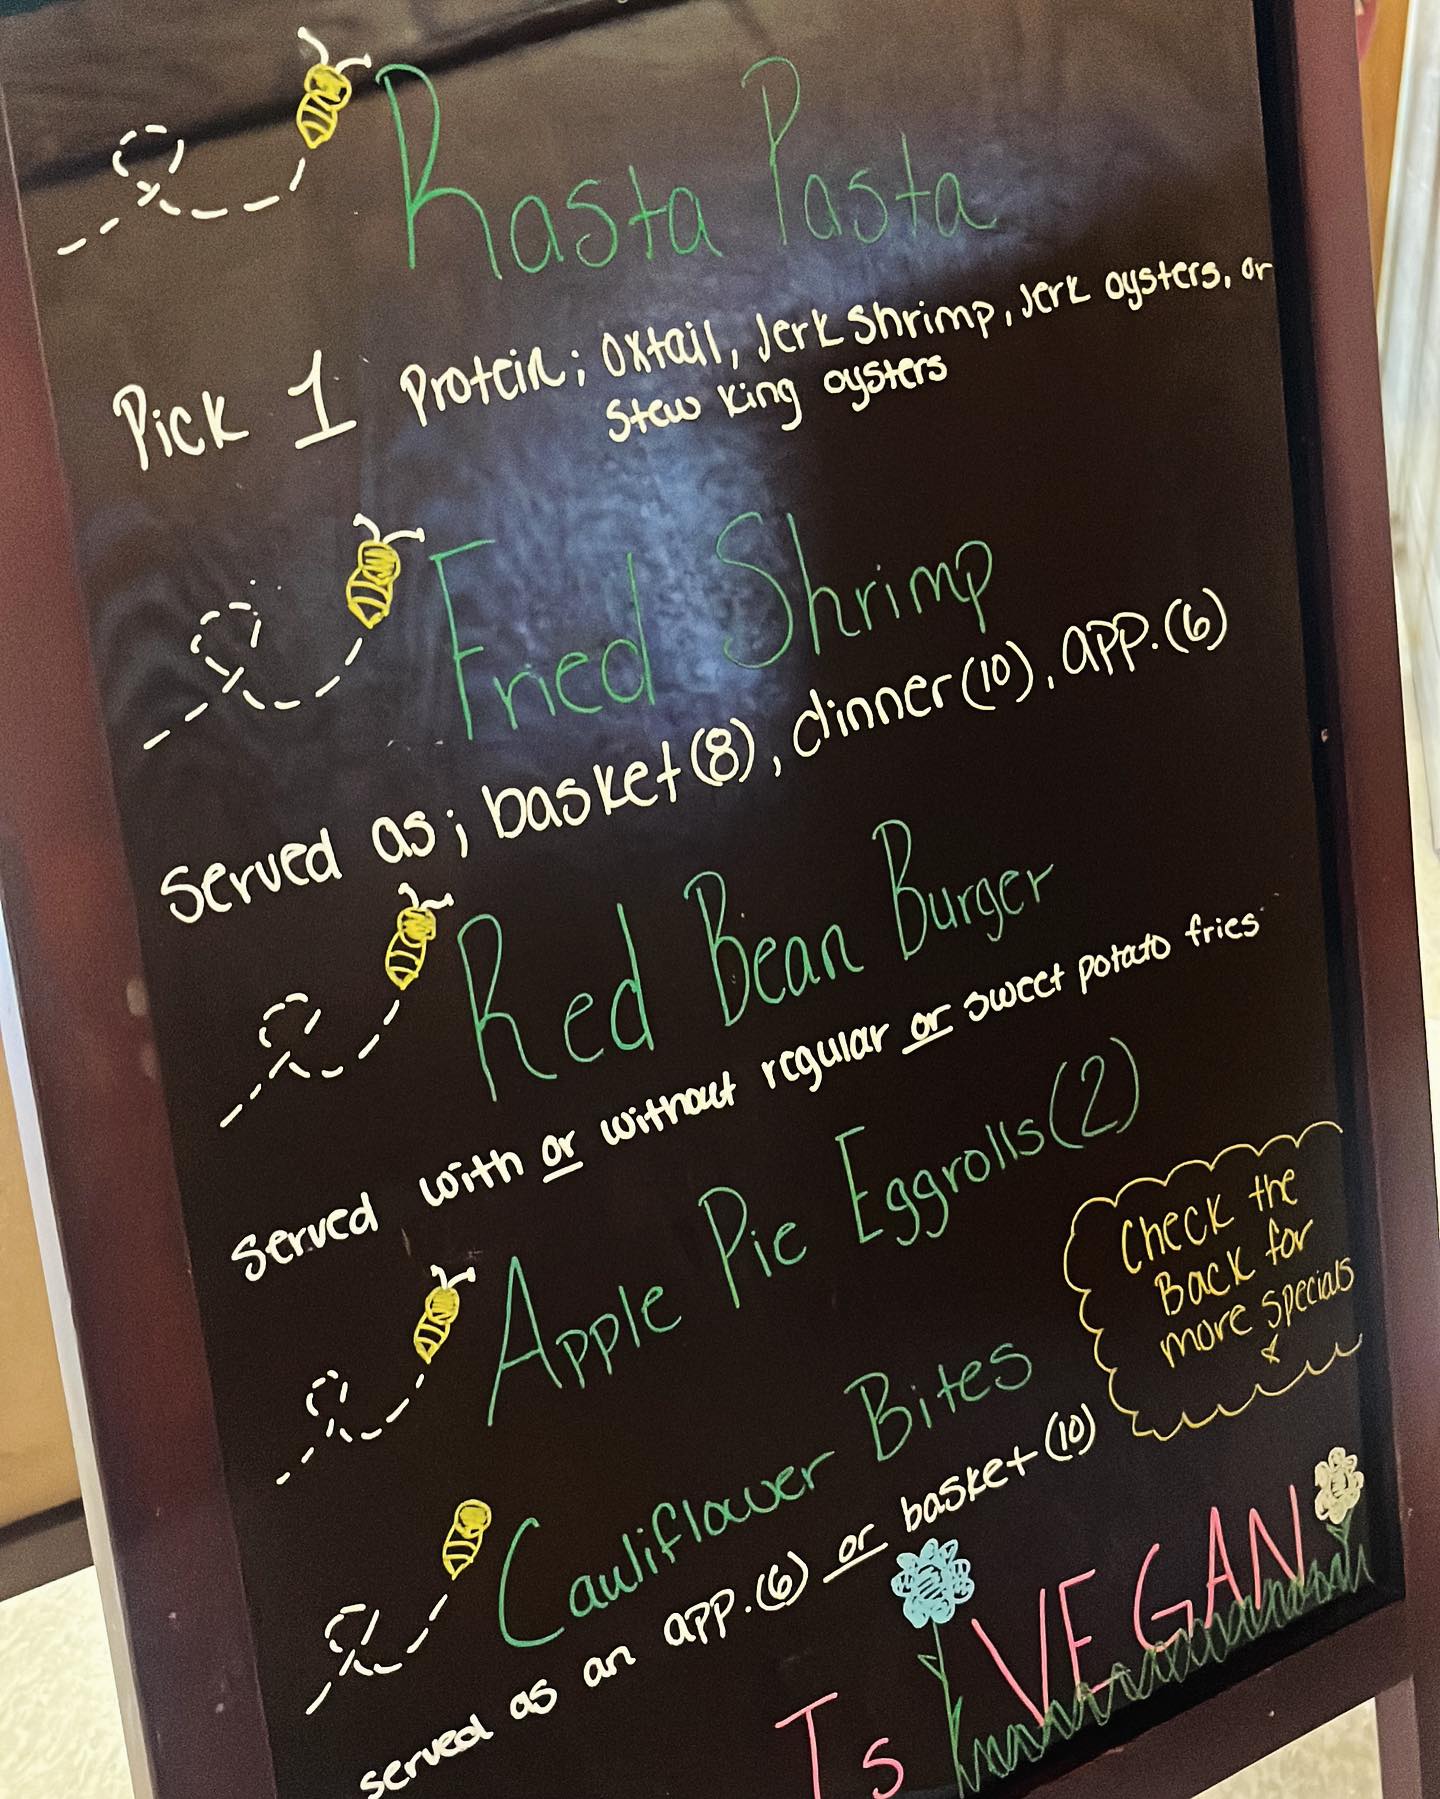 Rasta Pasta
Pick 1 Protein; oxtail, Jerk shrimp, Jerk oysters, or
stew king oysters
Fried Shrimp
served as; basket(8), dinner(10), app.(6)
Red Bean Burger
served with or without regular or sweet potato fries
Apple Pie Eggrolls(2)
Check the
Back for
more specials
Cauliflower Bites
served as an app.(6) or basket(10)
Is VEGAN